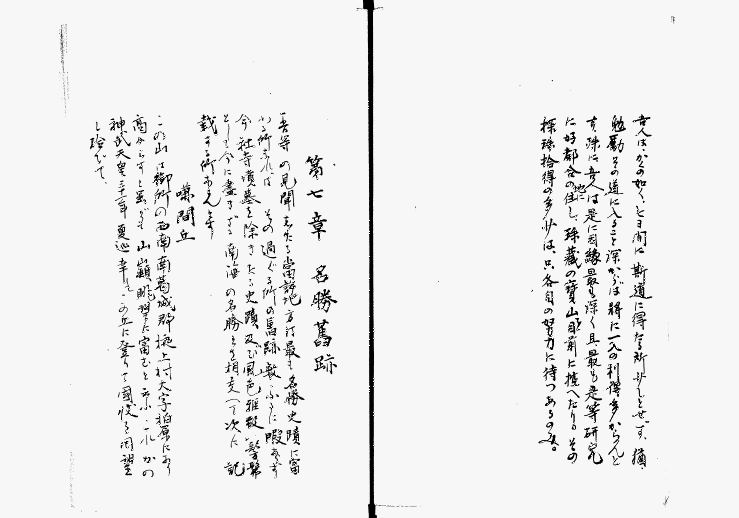 吾人はかの如く、七日間に斯道に得たる所少しとせず、猶、
勉励その道に入ること深からば将に一入の利得多からんと
す、殊に吾人は是に因縁最も深く且最も是等研究
に好都合の地に住し、珠蔵の寶山眼前に横へたり。その
探珠拾得の多少は、只各自の努力に待つあるのみ。
第七章 名勝舊跡
吾等の見聞したる當該地方は最も名勝史蹟に富
める所なれば、その過ぐる所の舊跡数ふるに暇あらず
今社寺墳墓を除きたる史蹟及び風色雅致
として今に盡きざる南海の名勝とを相交へて次に記
載する所あらんとす
嗛間丘
この山は御所の西南南葛城郡掖上村大字柏原にあり
高からずと雖ども山巓眺望に富むと云ふ、これかの
神武天皇三十一年夏巡幸この丘に登りて國状を回望
し給ひて、